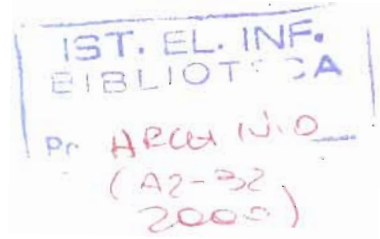 IST. EL. INF.
BIBLIOTECA
ARCHIVIO
(A2-32
2000)